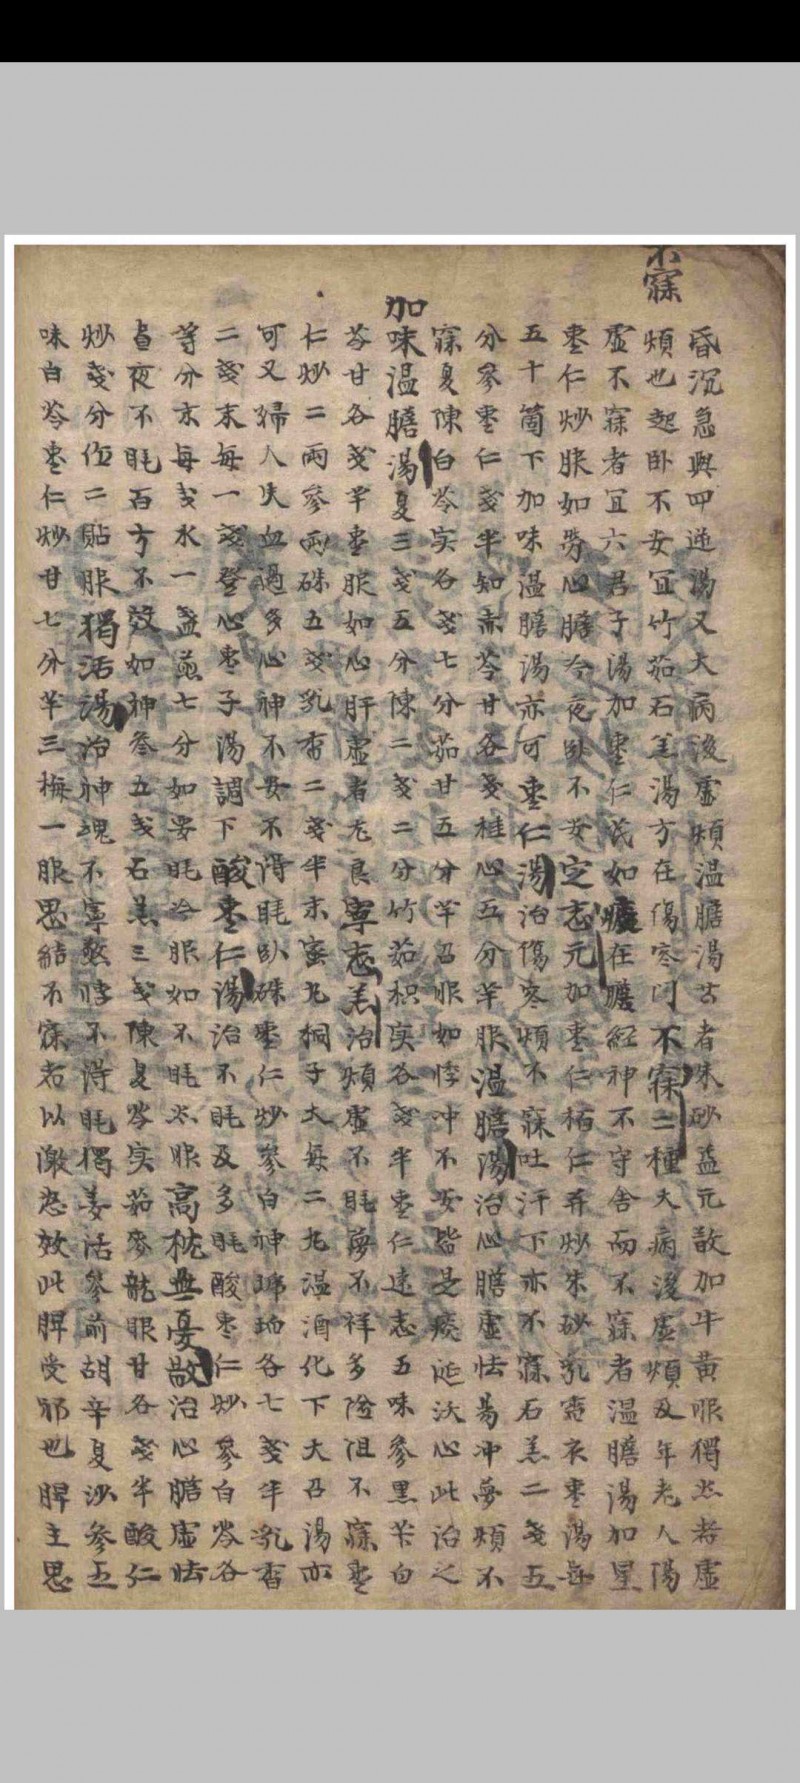 不寐
昏沉急與四逆湯又大病後虛煩溫膽湯苦者朱砂益元散加牛黃服獨熱者虛
煩也起卧不安宜竹茹石羔湯方在傷寒門不寐二種大病後虛煩及年老人陽
虛不寐者宜六君子湯加枣仁芪如痰在膽經神不守舍而不寐者溫膽湯加星
枣仁炒服如勞心膽冷夜卧不安定志元加枣仁栢仁并炒朱砂乳香衣枣湯每
五十箇下加味溫膽湯亦可枣仁湯治傷寒煩不寐吐汗下亦不寐石羔二戔五
分參枣仁戔半知赤苓甘各戔桂心五分羊服溫膽湯治心膽虛怯易冲夢煩不
寐夏陳白苓实各戔七分茹甘五分羊召服如悸冲不安皆是痰涎沃心此治之
加味溫膽湯夏三戔五分陳二戔二分竹茹枳实各戔半枣仁遠志五味參黑芐白
苓甘各戔羊枣服如心肝虛者尤良寧志羔治煩虛不眠夢不祥多险阻不寐枣
仁炒二兩參兩硃五戔乳香二戔半末蜜丸桐子大每二丸温酒化下大召湯亦
可又婦人失血過多心神不安不得眠卧硃枣仁炒參白神琥珀各七戔半乳香
二戔末每一戔登心枣子湯調下酸枣仁湯治不眠及多眠酸枣仁炒參白苓各
等分末每戔水一盞煎七分如要眠冷服如不眠热服高枕無憂散治心膽虛怯
昼夜不眠百方不效如神參五戔石羔三戔陳夏苓实茹麥龍眼甘各戔半酸仁
炒戔分作二貼服獨活湯治神魂不寧驚悸不得眠獨羌活參前胡辛夏沙參五
味白苓枣仁炒甘七分羊三梅一服思結不寐者以激怒效此脾受邪也脾主思